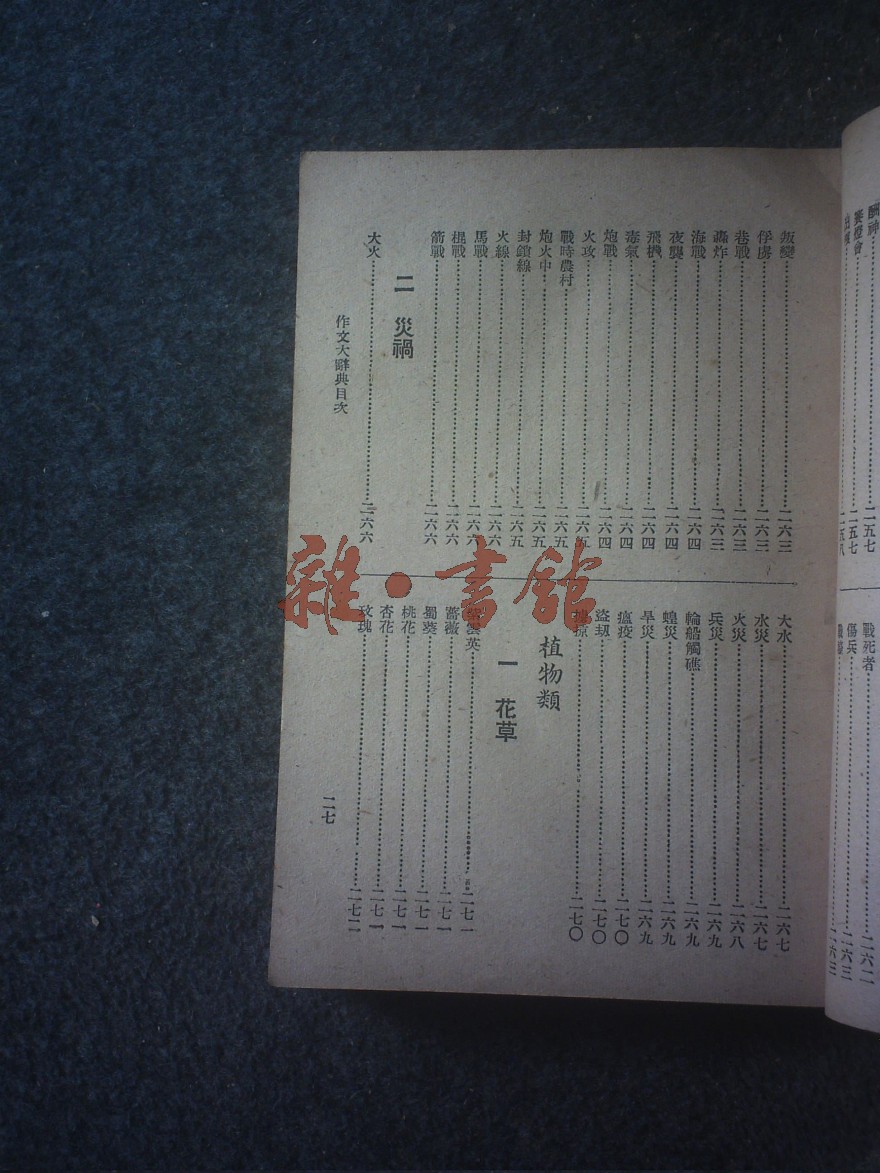 酬神……二五七
賽燈會……二五七
二五八
戰死者……二六二
傷兵……二六三
二六三
叛變……二六三
俘虜……二六三
巷戰……二六三
轟炸……二六三
海戰……二六四
夜襲……二六四
飛機……二六四
毒氣……二六四
炮戰……二六四
火攻……二六五
戰時農村……二六五
炮火中……二六五
封鎖線……二六五
火線……二六六
馬戰……二六六
棍戰……二六六
箭戰……二六六
二 災禍
大火……二六六
大水……二六七
水災……二六七
火災……二六八
兵災……二六九
輪船觸礁……二六九
蝗災……二六九
旱災……二六九
瘟疫……二七〇
盜刼……二七〇
二七〇
植物類
一 花草
雲英……二七一
薔薇……二七一
蜀葵……二七一
桃花……二七一
杏花……二七一
玫瑰……二七二
作文大辭典目次
二七
雜·書館